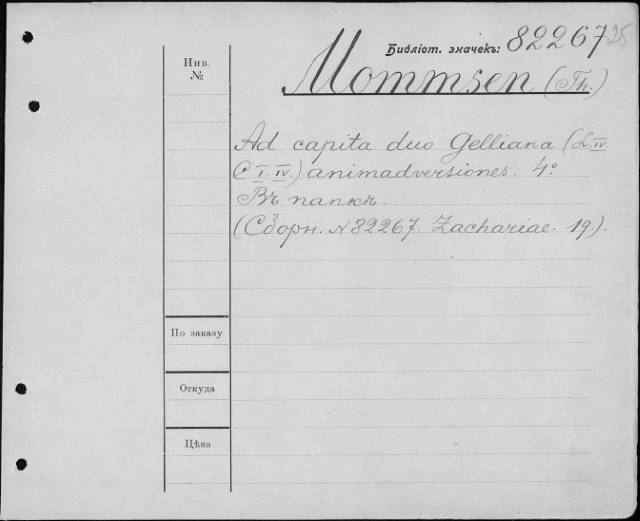 Библіот. значекъ: 82267 25
Инв.
№
Mommsen (Th.)
Ad capita duo Gelliana (L. IV
C I. IV.) animadversiones. 4º
Въ папкѣ.
(Сборн. № 82267. Zachariae. 19.).
По заказу
Откуда
Цѣна